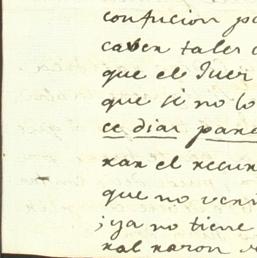 confucion pa
caben tales
que el Juez
que si no lo
ce dias para
rar el recur
que no veni
; ya no tiene
nal razon